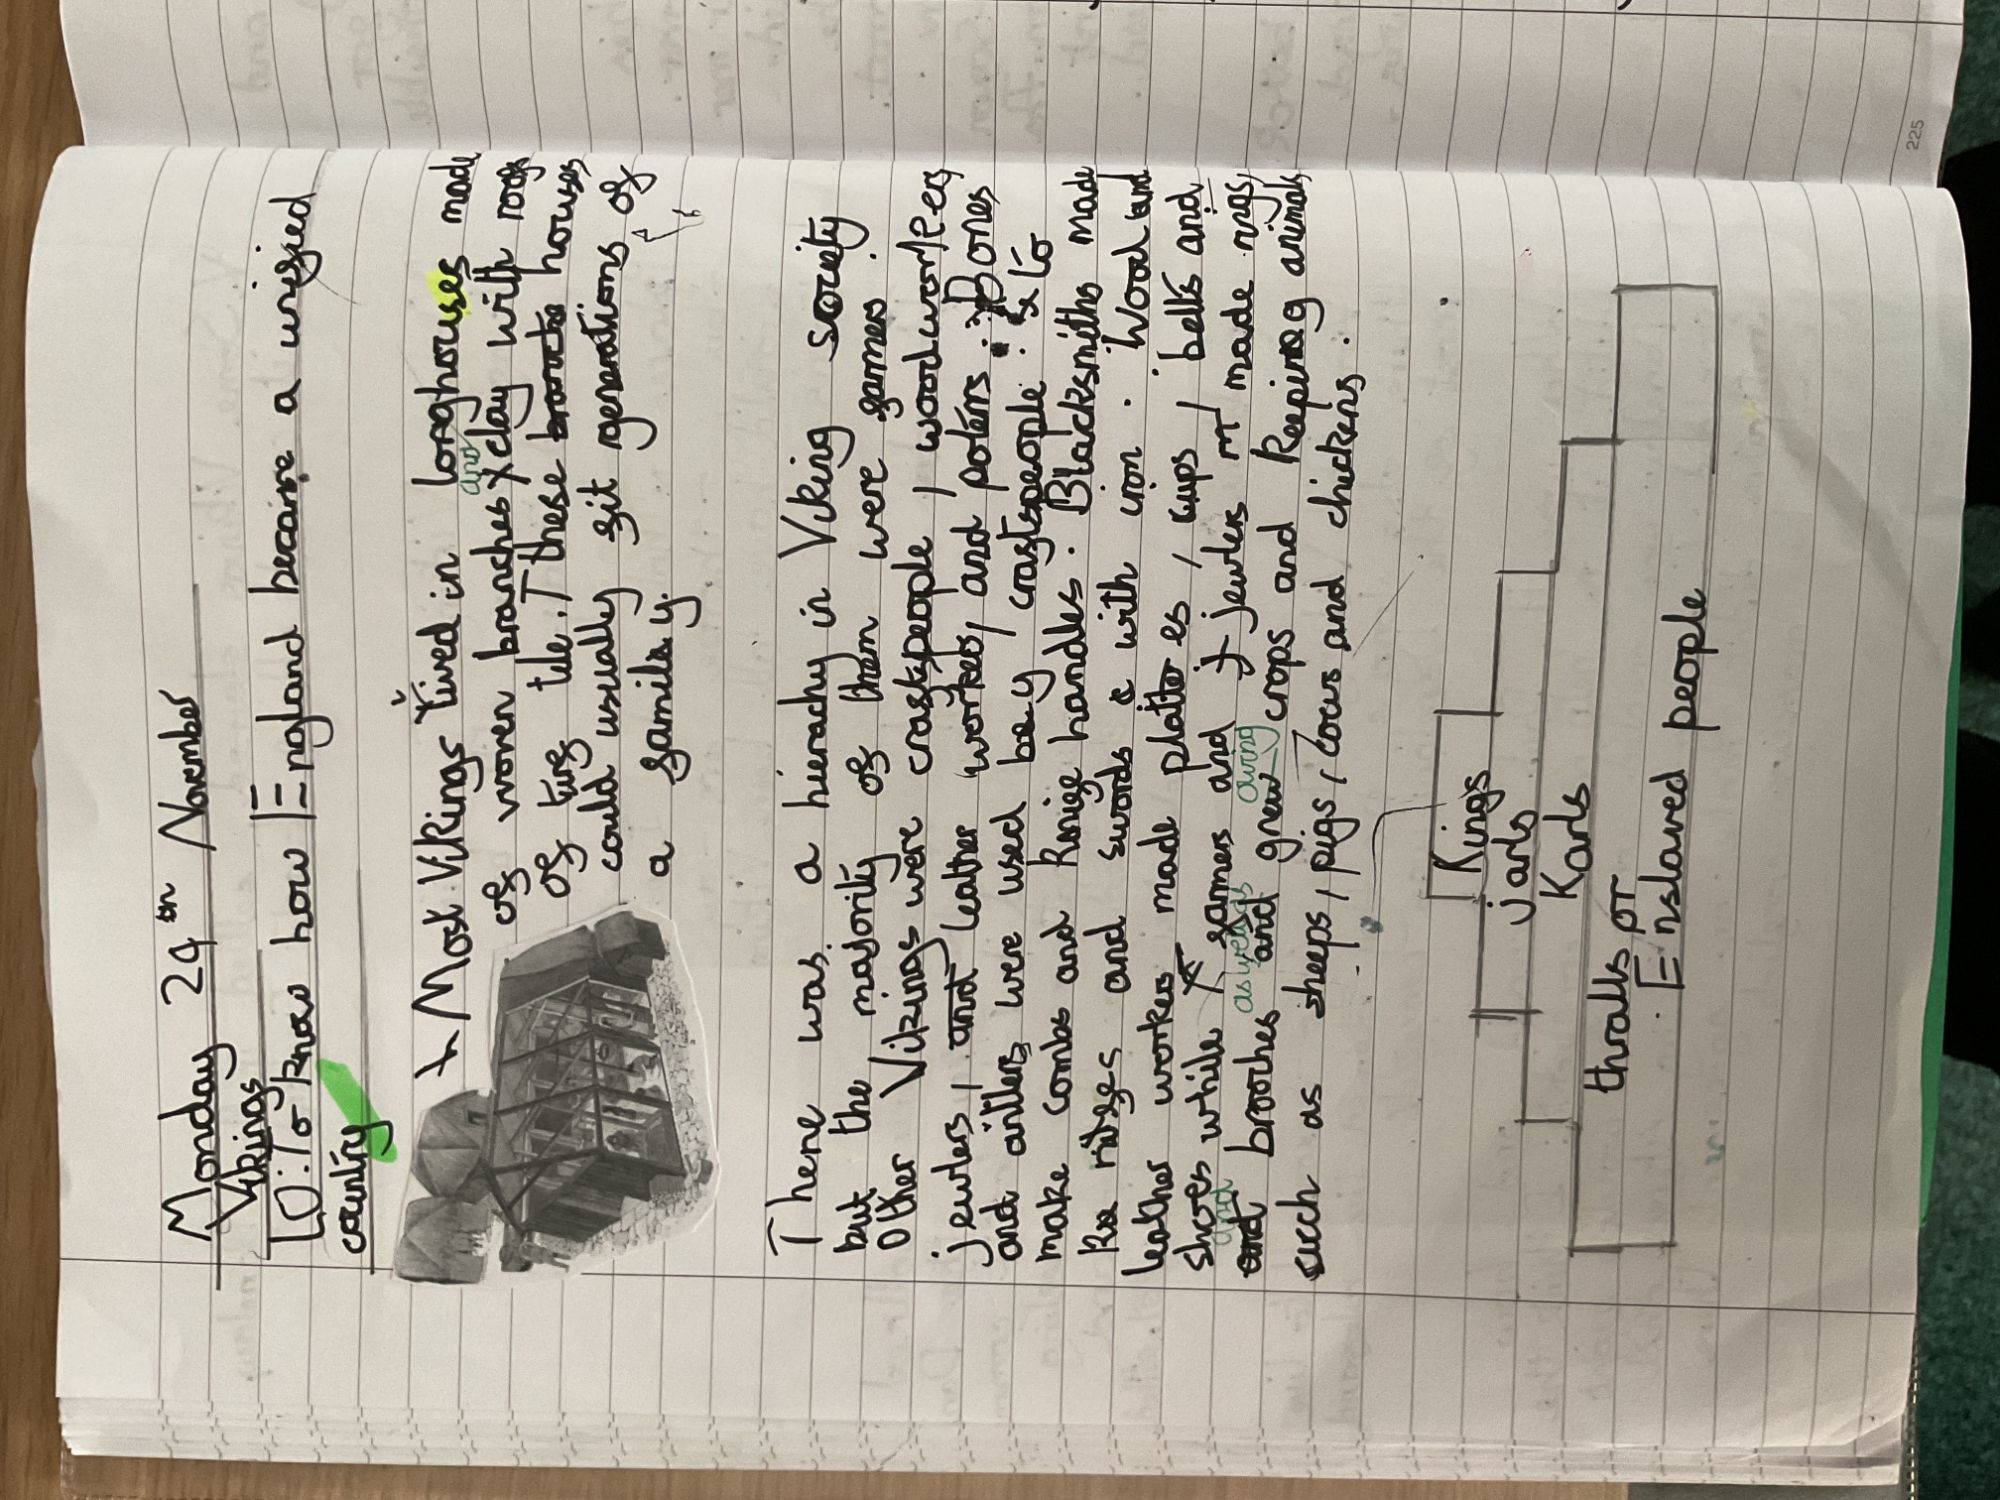 Monday 24th November
Vikings
LO: To know how England became a unified
country
Most Vikings lived in longhouses made
and
of woven branches clay with roofs
of turf tile. These houses
could usually fit generations of
a family.
There was a hierachy in Viking society
but the majority of them were farmers.
Other Vikings were craftspeople, woodworkers,
jewlers, and leather workers, and poters. Bones
and antlers were used be y craftspeople. to
make combs and knife handles. Blacksmiths made
knives and swords with iron. Wood and
leather workers made platter es, cups, belts and
shoes while farmers and jewlers made rings,
and as well as during
and brooches and grew crops and keeping animals
such as sheeps, pigs, cows and chickens.
Kings
jarls
Karls
thralls or
Enslaved people
225